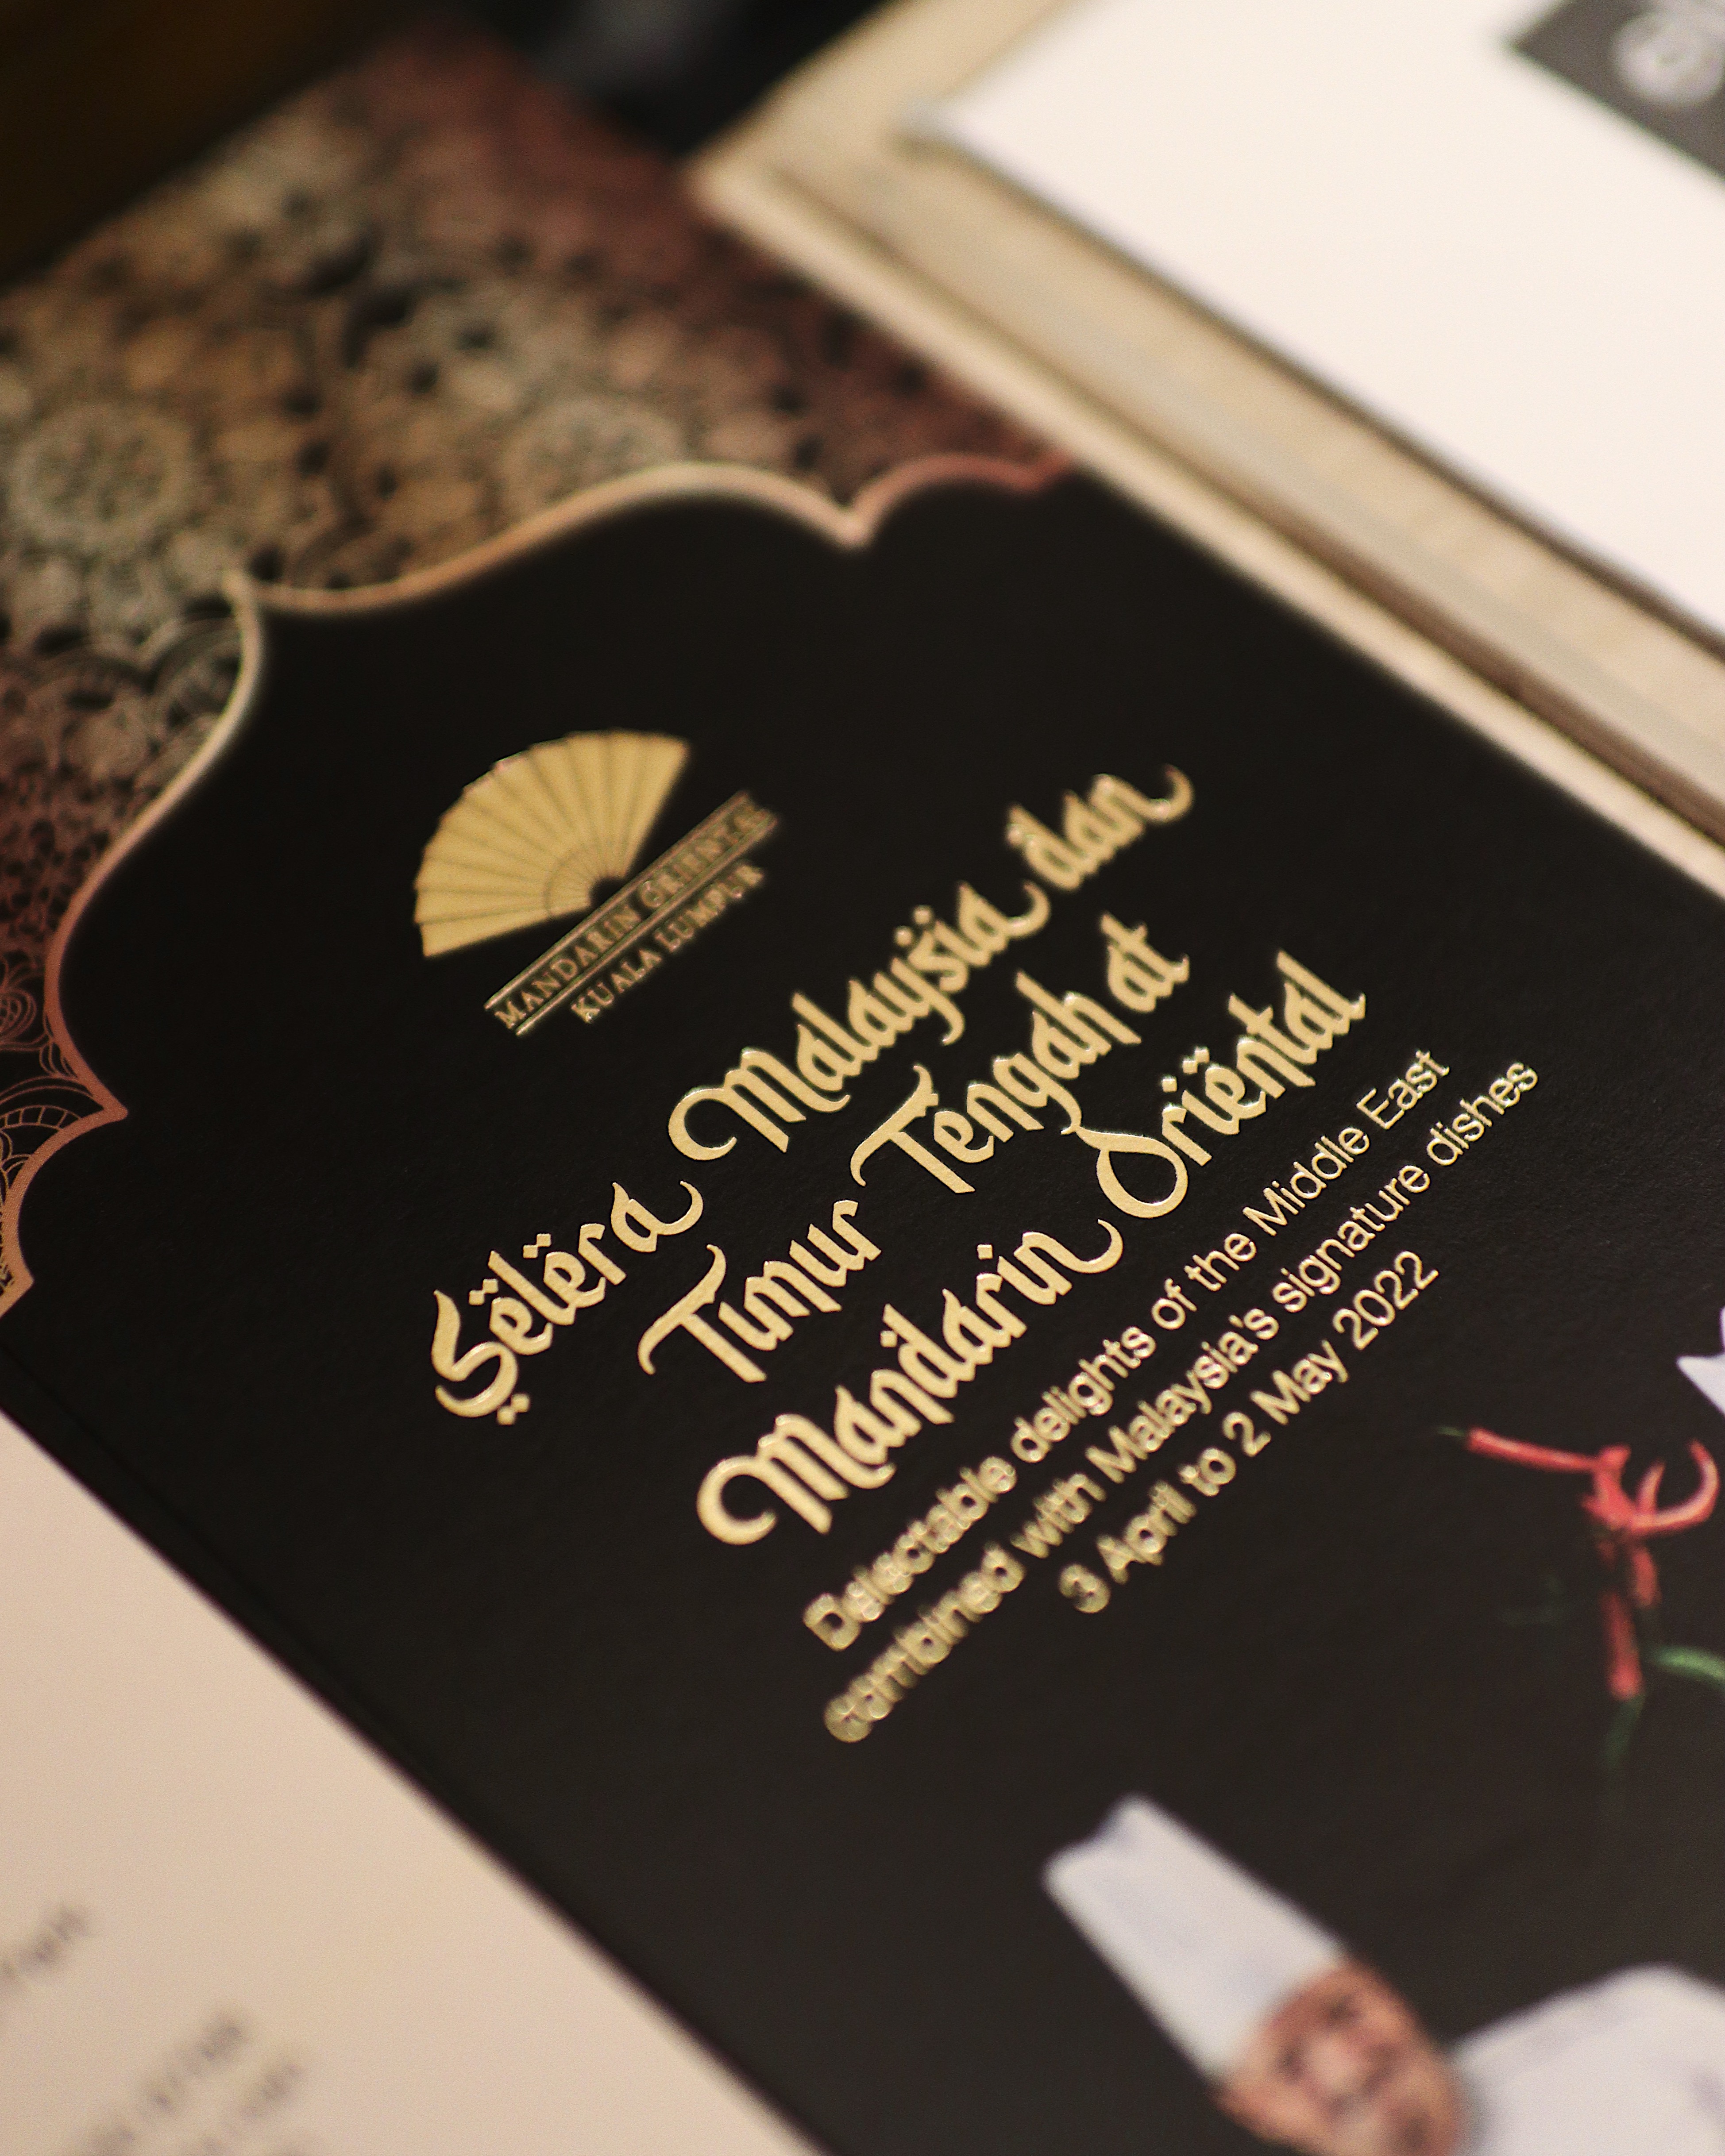 MANDARIN ORIENTAL
KUALA LUMPUR
Selera Malaysia dan
Timur Tengah at
Mandarin Oriental
Delectable delights of the Middle East
combined with Malaysia's signature dishes
3 April to 2 May 2022